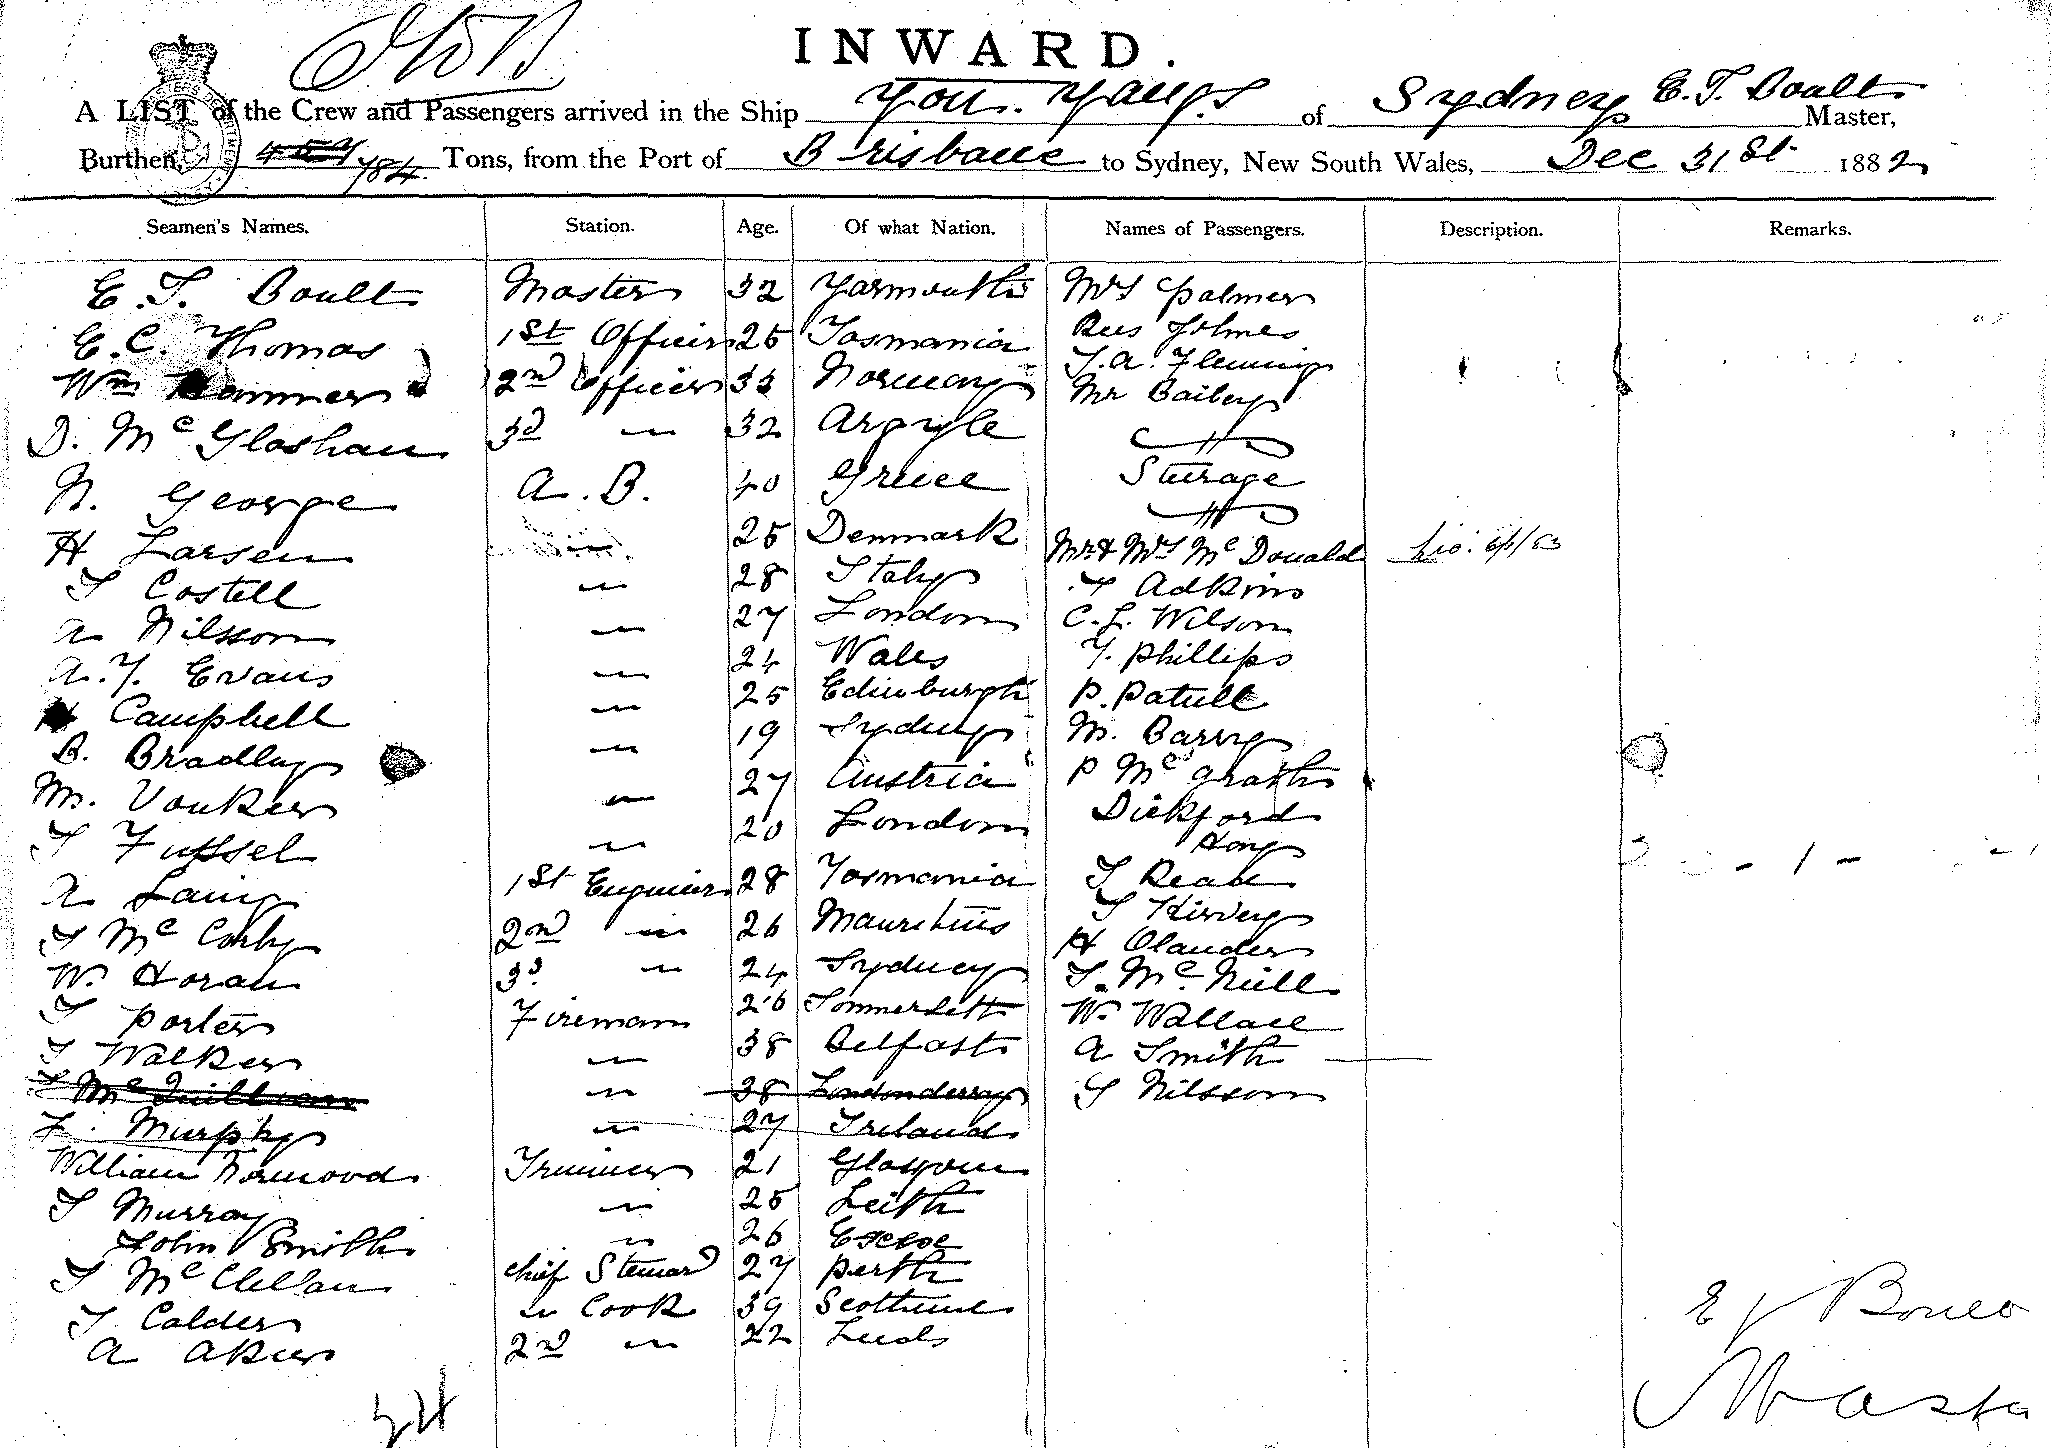 INWARD.
A LIST of the Crew and Passengers arrived in the Ship You Yangs of Sydney E. T. Boult Master,
Burthen, 457 484 Tons, from the Port of Brisbane to Sydney, New South Wales, Dec 31st 1882
Seamen's Names. Station. Age. Of what Nation. Names of Passengers. Description. Remarks.
E. T. Boult Master 32 Yarmouth Mrs Palmer
E. C. Thomas 1st Officer 25 Tasmania Rees Holmes
Wm Hammer 2nd Officer 33 Norway T. A. Fleming
D. McGlashan 3d " 32 Argyle Mr Bailey
N. George A. B. 40 Greece Steerage
H Larsen 25 Denmark Mr & Mrs McDonald
T Costell " 28 Italy T Adkins
A Nilsson " 27 London C. L. Wilson
A. F. Evans " 24 Wales T. Phillips
Campbell " 25 Edinburgh P. Patull
B. Bradley " 19 Sydney M. Barry
M. Vouker " 27 Austria P McGrath
T Fussel " 20 London Dickford
Hong
A Laing 1st Engineer 28 Tasmania T Reade
T McCorly 2nd " 26 Mauritius T Hirvey
W. Horan 3d " 24 Sydney H Olander
T Porter Fireman 26 Sommersett T. McNeill
T Walker " 38 Belfast W. Wallace
T McQuillan " 38 Londonderry A Smith
F. Murphy " 27 Ireland T Nilsson
William Norwood Trimmer 21 Glasgow
T Murray " 25 Leith
John Smith " 26
T McClellan Chief Steward 27 Perth
T Calder " Cook 39 Scotland
A Aker 2nd " 22 Leeds
E T Boult
Master